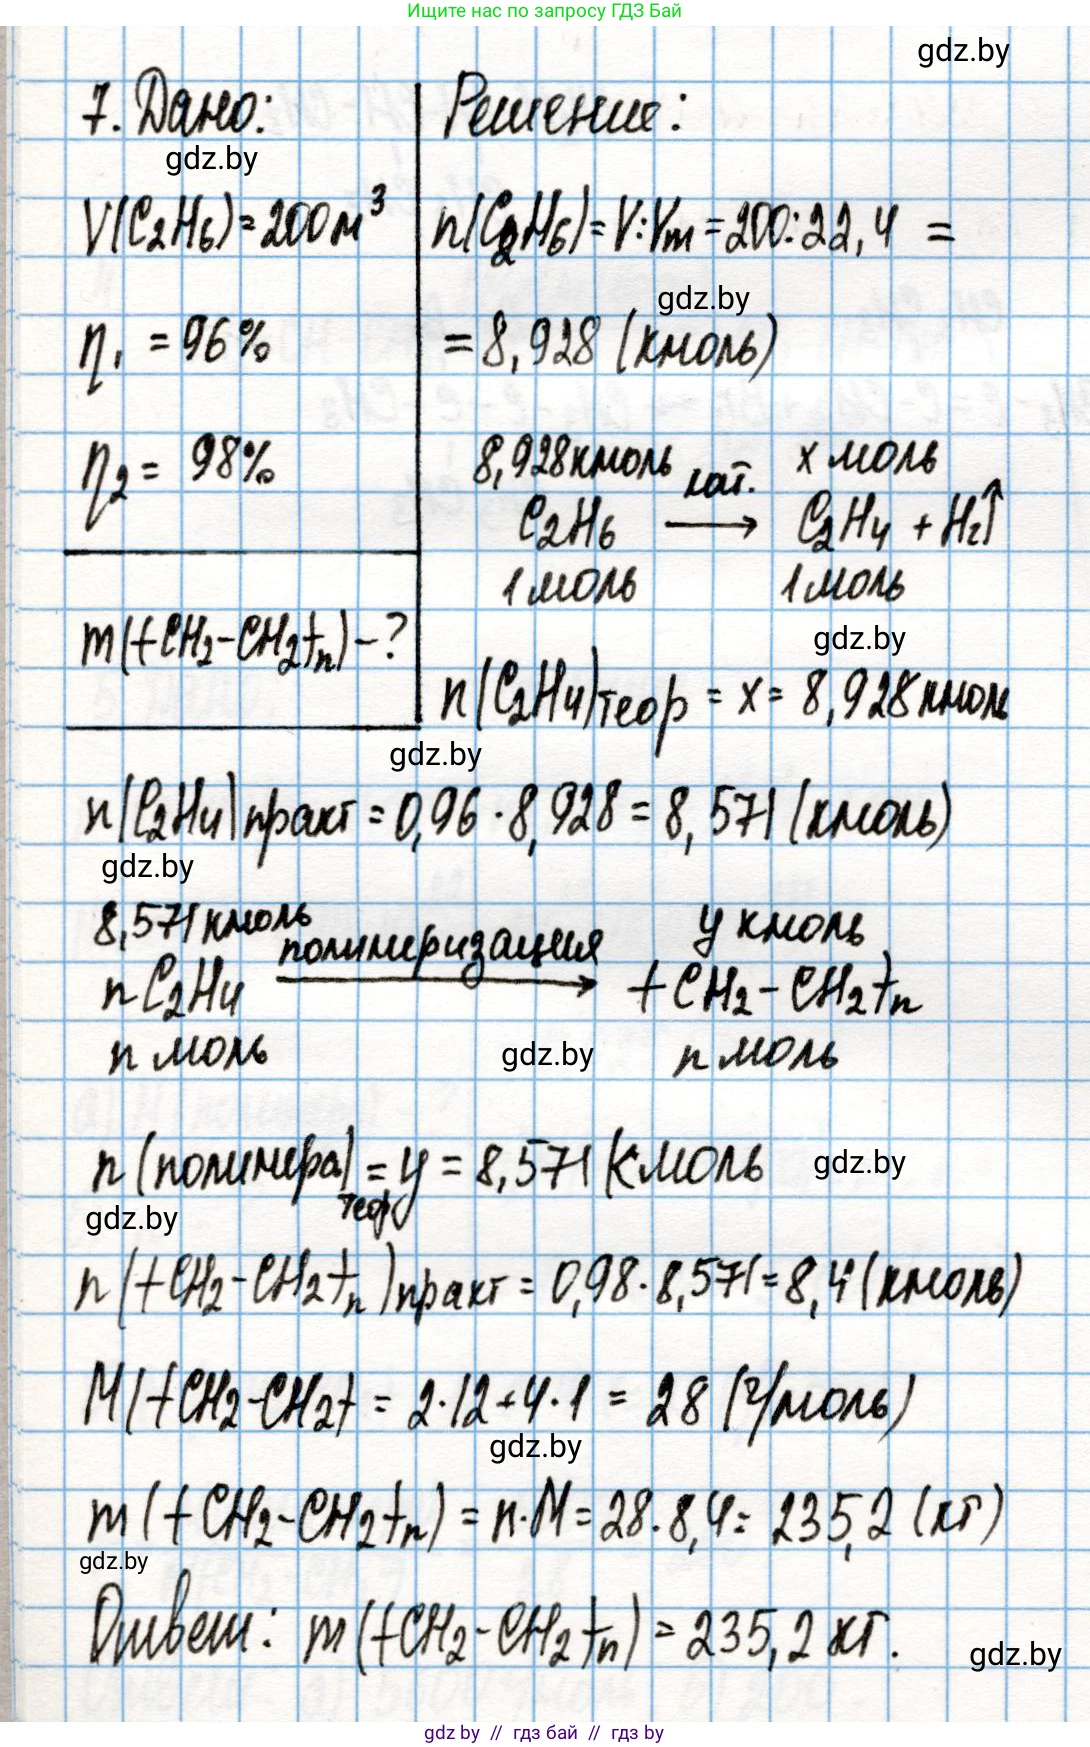 Ищите нас по запросу ГДЗ Бай
gdz.by
7. Дано:
Решение:
gdz.by
V(C₂H₆)=200м³
n(C₂H₆)=V:Vm=200:22,4 =
gdz.by
η₁ = 96%
=8,928 (кмоль)
η₂ = 98%
8,928кмоль кат. x моль
C₂H₆ → C₂H₄ + H₂↑
1 моль 1 моль
gdz.by
m(-(-CH₂-CH₂-)-n)-?
n(C₂H₄)теор = x = 8,928кмоль
gdz.by
n(C₂H₄)практ=0,96·8,928=8,571(кмоль)
gdz.by
8,571кмоль полимеризация y кмоль
nC₂H₄ → (-CH₂-CH₂-)n
n моль gdz.by n моль
n(полимера)теор=y=8,571(кмоль
gdz.by
gdz.by
n((-CH₂-CH₂-)n)практ=0,98·8,571=8,4(кмоль)
M(-CH₂-CH₂-) = 2·12+4·1 = 28 (г/моль)
gdz.by
m((-CH₂-CH₂-)n) = n·M=28·8,4= 235,2 (кг)
gdz.by
Ответ: m((-CH₂-CH₂-)n) = 235,2 кг.
gdz.by
gdz by // гдз бай // гдз by